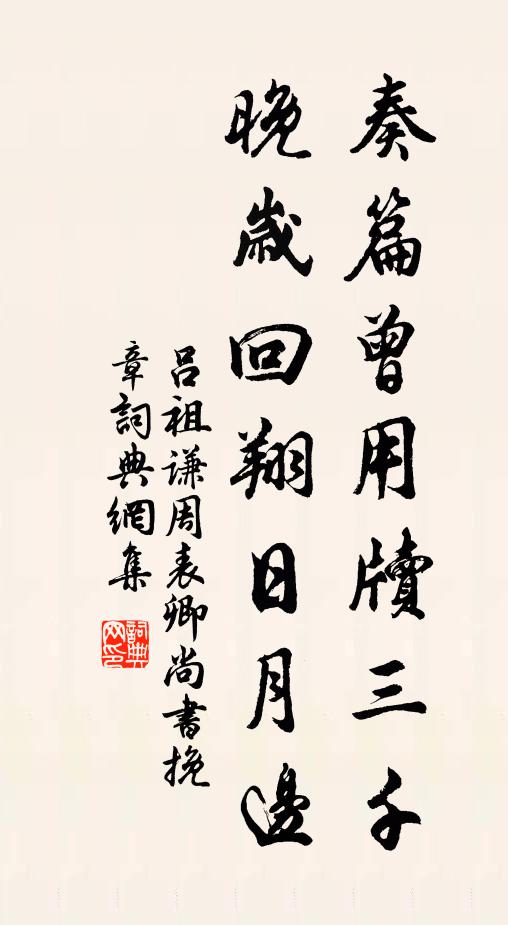 奏篇曾用牘三千
晚歲回翔日月邊
呂祖謙周表卿尚書挽
章詞典網集
詞典网印